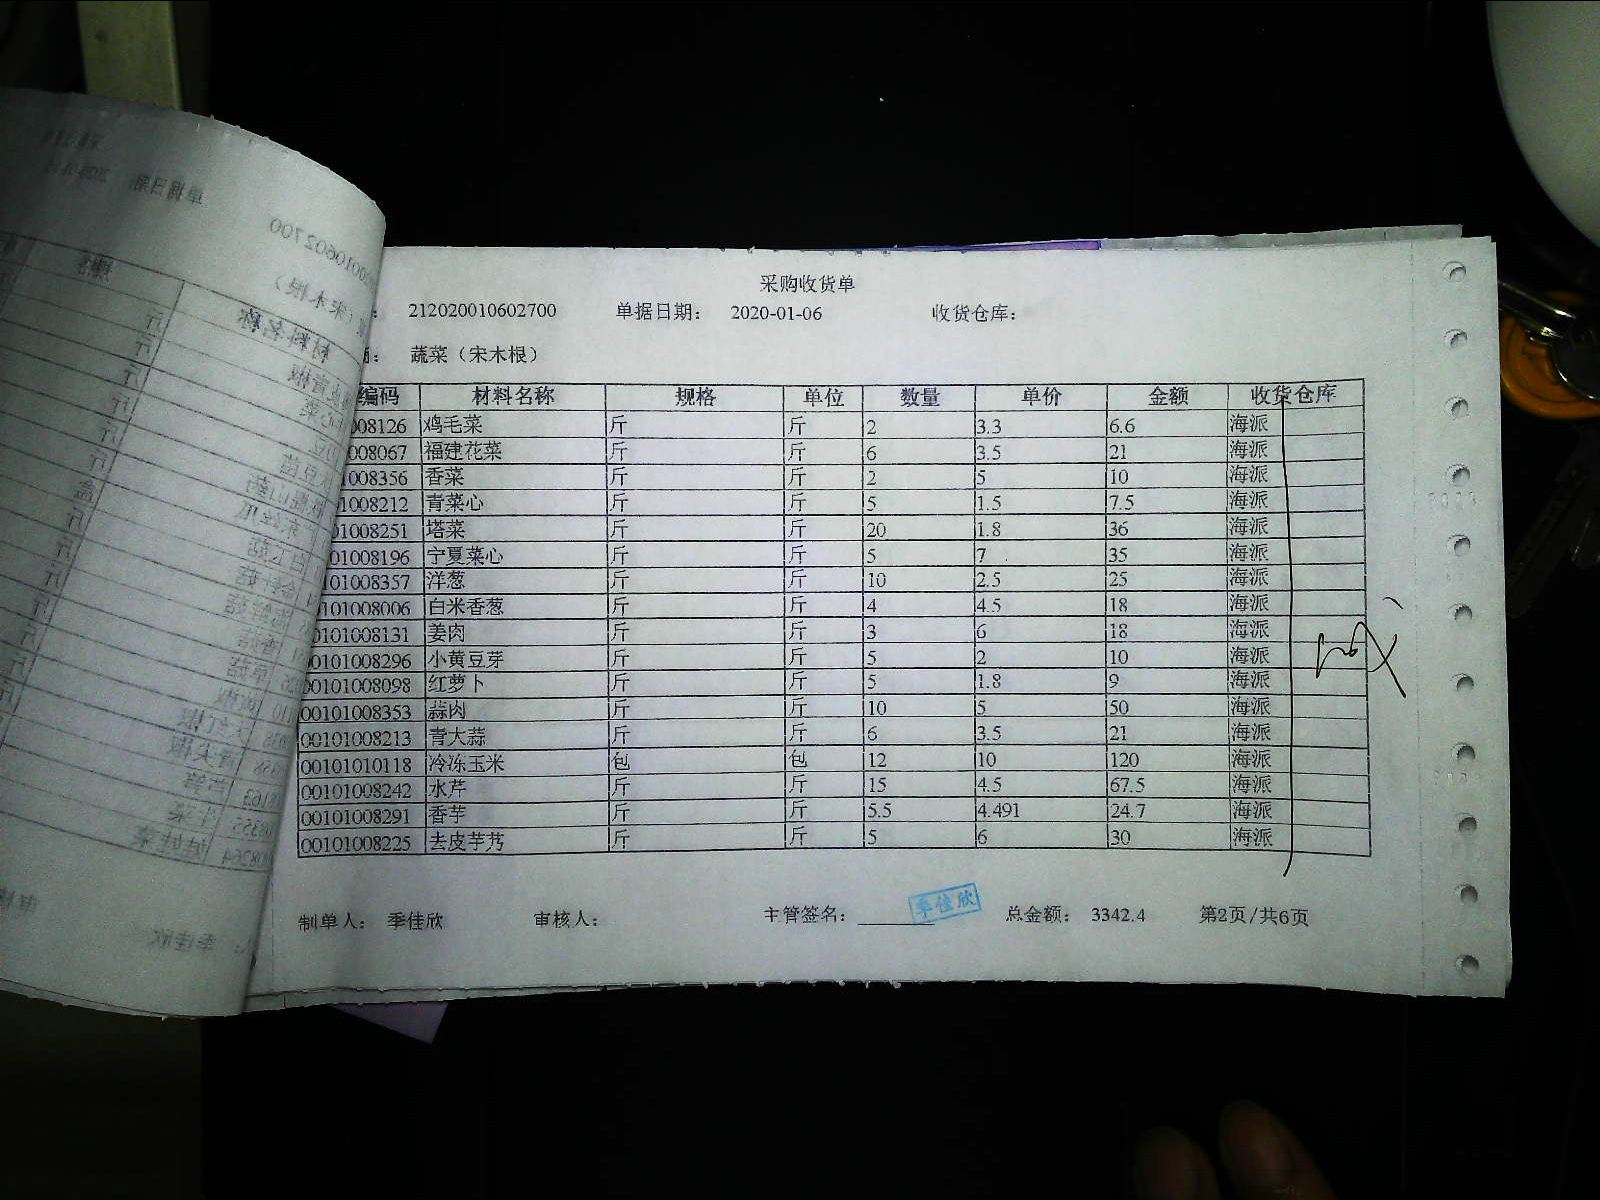 采购收货单
212020010602700 单据日期： 2020-01-06 收货仓库：
蔬菜（宋木根）
编码 材料名称 规格 单位 数量 单价 金额 收货仓库
008126 鸡毛菜 斤 斤 2 3.3 6.6 海派
008067 福建花菜 斤 斤 6 3.5 21 海派
1008356 香菜 斤 斤 2 5 10 海派
1008212 青菜心 斤 斤 5 1.5 7.5 海派
01008251 塔菜 斤 斤 20 1.8 36 海派
01008196 宁夏菜心 斤 斤 5 7 35 海派
101008357 洋葱 斤 斤 10 2.5 25 海派
0101008006 白米香葱 斤 斤 4 4.5 18 海派
0101008131 姜肉 斤 斤 3 6 18 海派
00101008296 小黄豆芽 斤 斤 5 2 10 海派
00101008098 红萝卜 斤 斤 5 1.8 9 海派
00101008353 蒜肉 斤 斤 10 5 50 海派
00101008213 青大蒜 斤 斤 6 3.5 21 海派
00101010118 冷冻玉米 包 包 12 10 120 海派
00101008242 水芹 斤 斤 15 4.5 67.5 海派
00101008291 香芋 斤 斤 5.5 4.491 24.7 海派
00101008225 去皮芋艿 斤 斤 5 6 30 海派
制单人： 季佳欣 审核人： 主管签名： 季佳欣 总金额： 3342.4 第2页/共6页